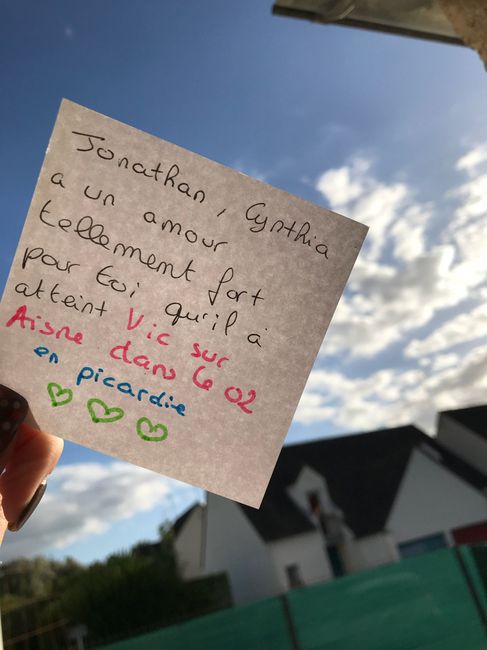 Jonathan, Cynthia
a un amour
tellement fort
pour toi qu'il à
atteint Vic sur
Aisne dans le 02
en picardie